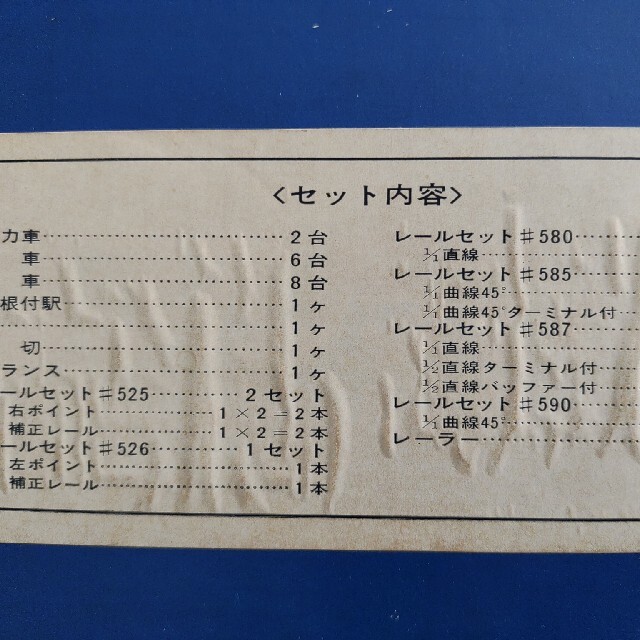 〈セット内容〉
力車……………………2台
車……………………6台
車……………………8台
根付駅……………………1ヶ
……………………1ヶ
切……………………1ヶ
ランス……………………1ヶ
ールセット♯525………2セット
右ポイント…………1×2=2本
補正レール…………1×2=2本
ールセット♯526………1セット
左ポイント……………………1本
補正レール……………………1本
レールセット♯580………
1/1直線……………………
レールセット♯585………
1/1曲線45°……………………
1/1曲線45°ターミナル付……
レールセット♯587………
1/1直線……………………
1/2直線ターミナル付………
1/2直線バッファー付………
レールセット♯590………
1/1曲線45°……………………
レーラー……………………